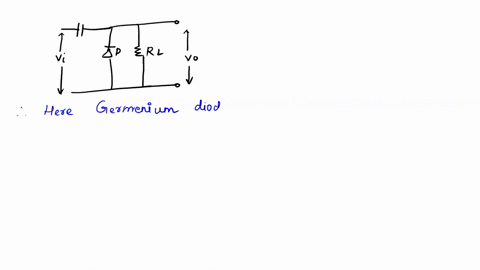 Vi
D
RL
Vo
∴ Here Germenium diod